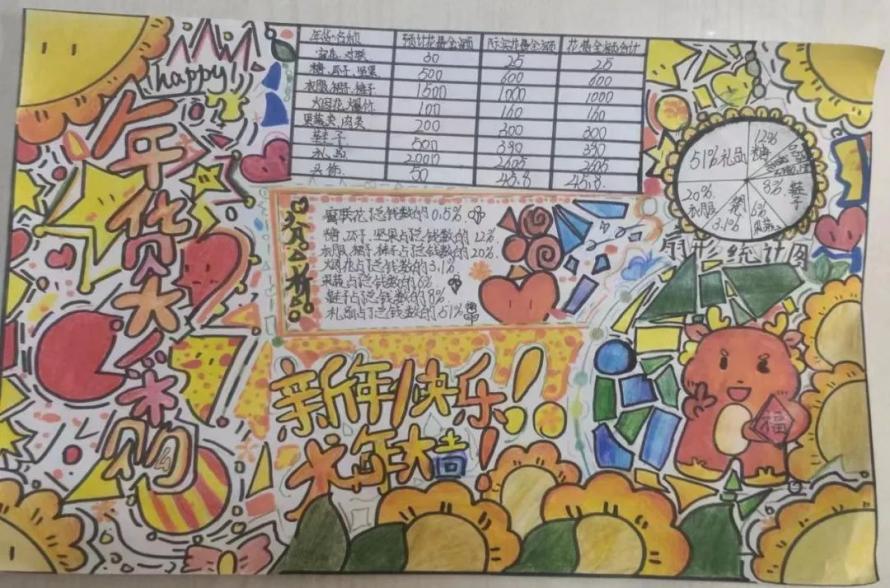 happy!
年货大采购
年货名称 预计花费金额 实际花费金额 花费金额合计
窗花、对联 30 25 25
糖、瓜子、坚果 500 600 600
衣服、裙子、裤子 1500 1000 1000
烟花、爆竹 100 160 160
果蔬类、肉类 200 300 300
鞋子 500 390 390
礼品 2000 2605 2605
50 45.8 45.8
窗花占总钱数的0.5%
糖、瓜子、坚果占总钱数的12%
衣服、裙子、裤子占总钱数的20%
烟花占总钱数的3.1%
果蔬占总钱数的6%
鞋子占总钱数的8%
礼品占总钱数的51%
51%礼品
12%
糖
8%鞋子
6%
果蔬
3.1%
20%
衣服
扇形统计图
新年快乐!
龙年大吉!
福